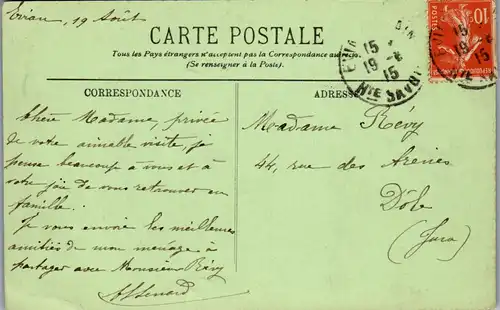 Evian, 19 Août
CARTE POSTALE
Tous les Pays étrangers n'acceptent pas la Correspondance au
(Se renseigner à la Poste).
10
POSTES
15
19 - 8
15
Hte SAVOIE
15
19
15
CORRESPONDANCE
ADRESSE
Chère Madame, privée
de votre aimable visite, je
pense beaucoup à vous et à
votre joie de vous retrouver en
famille.
Je vous envoie les meilleures
amitiés de mon ménage à
partager avec Monsieur Révy
Madame Révy
44, rue des Arènes
Dôle
(Jura)